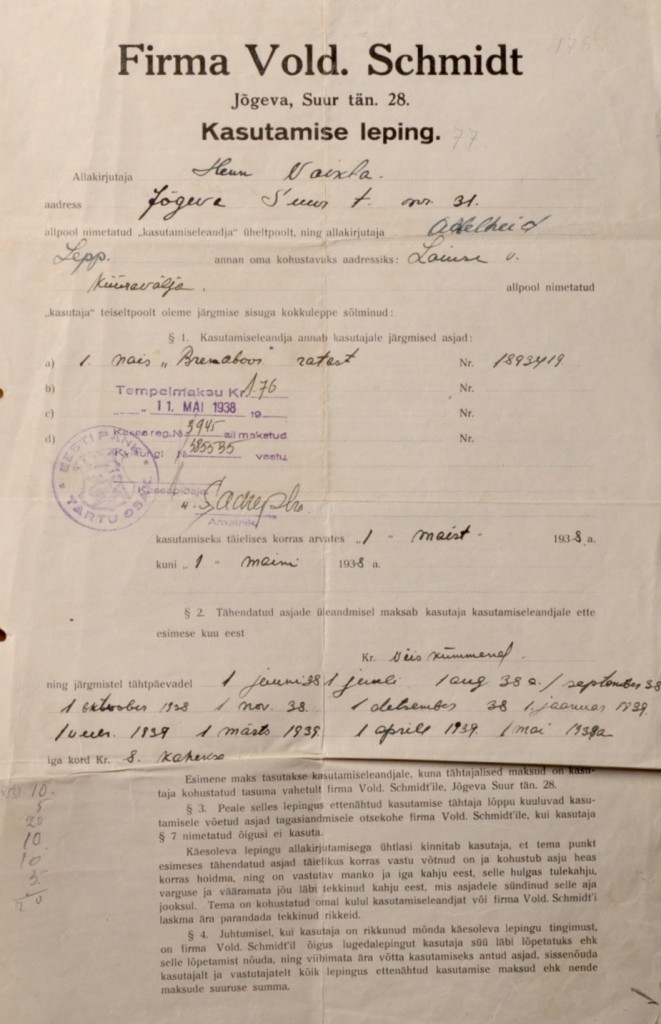 Firma Vold. Schmidt
Jõgeva, Suur tän. 28.
Kasutamise leping.
77
Allakirjutaja Henn Vaixla.
aadress Jõgeva Suur t. nr. 31.
allpool nimetatud „kasutamiseleandja" üheltpoolt, ning allakirjutaja Adelheid
Lepp. annan oma kohustavaks aadressiks: Laiuse v.
Küüravälja. allpool nimetatud
„kasutaja" teiseltpoolt oleme järgmise sisuga kokkuleppe sõlminud:
§ 1. Kasutamiseleandja annab kasutajale järgmised asjad:
a) 1. nais „Brenaboos" ratast Nr. 1893419
b) Nr.
Tempelmaksu Kr. 1.76
c) 11. MAI 1938 19 Nr.
Kassareg. № 3945 all maketud
d) Nr.
№ 585535 vastu
EESTI PANK
TARTU OSAK.
Ametnik
kasutamiseks täielises korras arvates „1" maist 1938 a.
kuni „1" maini 1938 a.
§ 2. Tähendatud asjade üleandmisel maksab kasutaja kasutamiseleandjale ette
esimese kuu eest
Kr. viis kümmend.
ning järgmistel tähtpäevadel 1 juuni 38 1 juuli 1 aug 38 a. 1 september 38
1 oktoober 1938 1 nov. 38. 1 detsember 38 1. jaanuar 1939.
1 veer. 1939 1 märts 1939. 1 aprill 1939. 1 mai 1939a
iga kord Kr. 8. kaheksa
Esimene maks tasutakse kasutamiseleandjale, kuna tähtajalised maksud on kasu-
taja kohustatud tasuma vahetult firma Vold. Schmidt'ile, Jõgeva Suur tän. 28.
§ 3. Peale selles lepingus ettenähtud kasutamise tähtaja lõppu kuuluvad kasu-
tamisele võetud asjad tagasiandmisele otsekohe firma Vold. Schmidt'ile, kui kasutaja
§ 7 nimetatud õigusi ei kasuta.
Käesoleva lepingu allakirjutamisega ühtlasi kinnitab kasutaja, et tema punkt
esimeses tähendatud asjad täielikus korras vastu võtnud on ja kohustub asju heas
korras hoidma, ning on vastutav manko ja iga kahju eest, selle hulgas tulekahju,
varguse ja vääramata jõu läbi tekkinud kahju eest, mis asjadele sündinud selle aja
jooksul. Tema on kohustatud omal kulul kasutamiseleandjat või firma Vold. Schmidt'i
laskma ära parandada tekkinud rikkeid.
§ 4. Juhtumisel, kui kasutaja on rikkunud mõnda käesoleva lepingu tingimust,
on firma Vold. Schmidt'il õigus lugedalepingut kasutaja süü läbi lõpetatuks ehk
selle lõpetamist nõuda, ning viibimata ära võtta kasutamiseks antud asjad, sissenõuda
kasutajalt ja vastutajatelt kõik lepingus ettenähtud kasutamise maksud ehk nende
maksude suuruse summa.
10.
5
20
10
10
5.